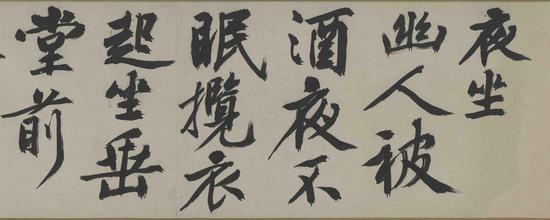 夜坐
幽人被
酒夜不
眠攬衣
起坐垂
堂前